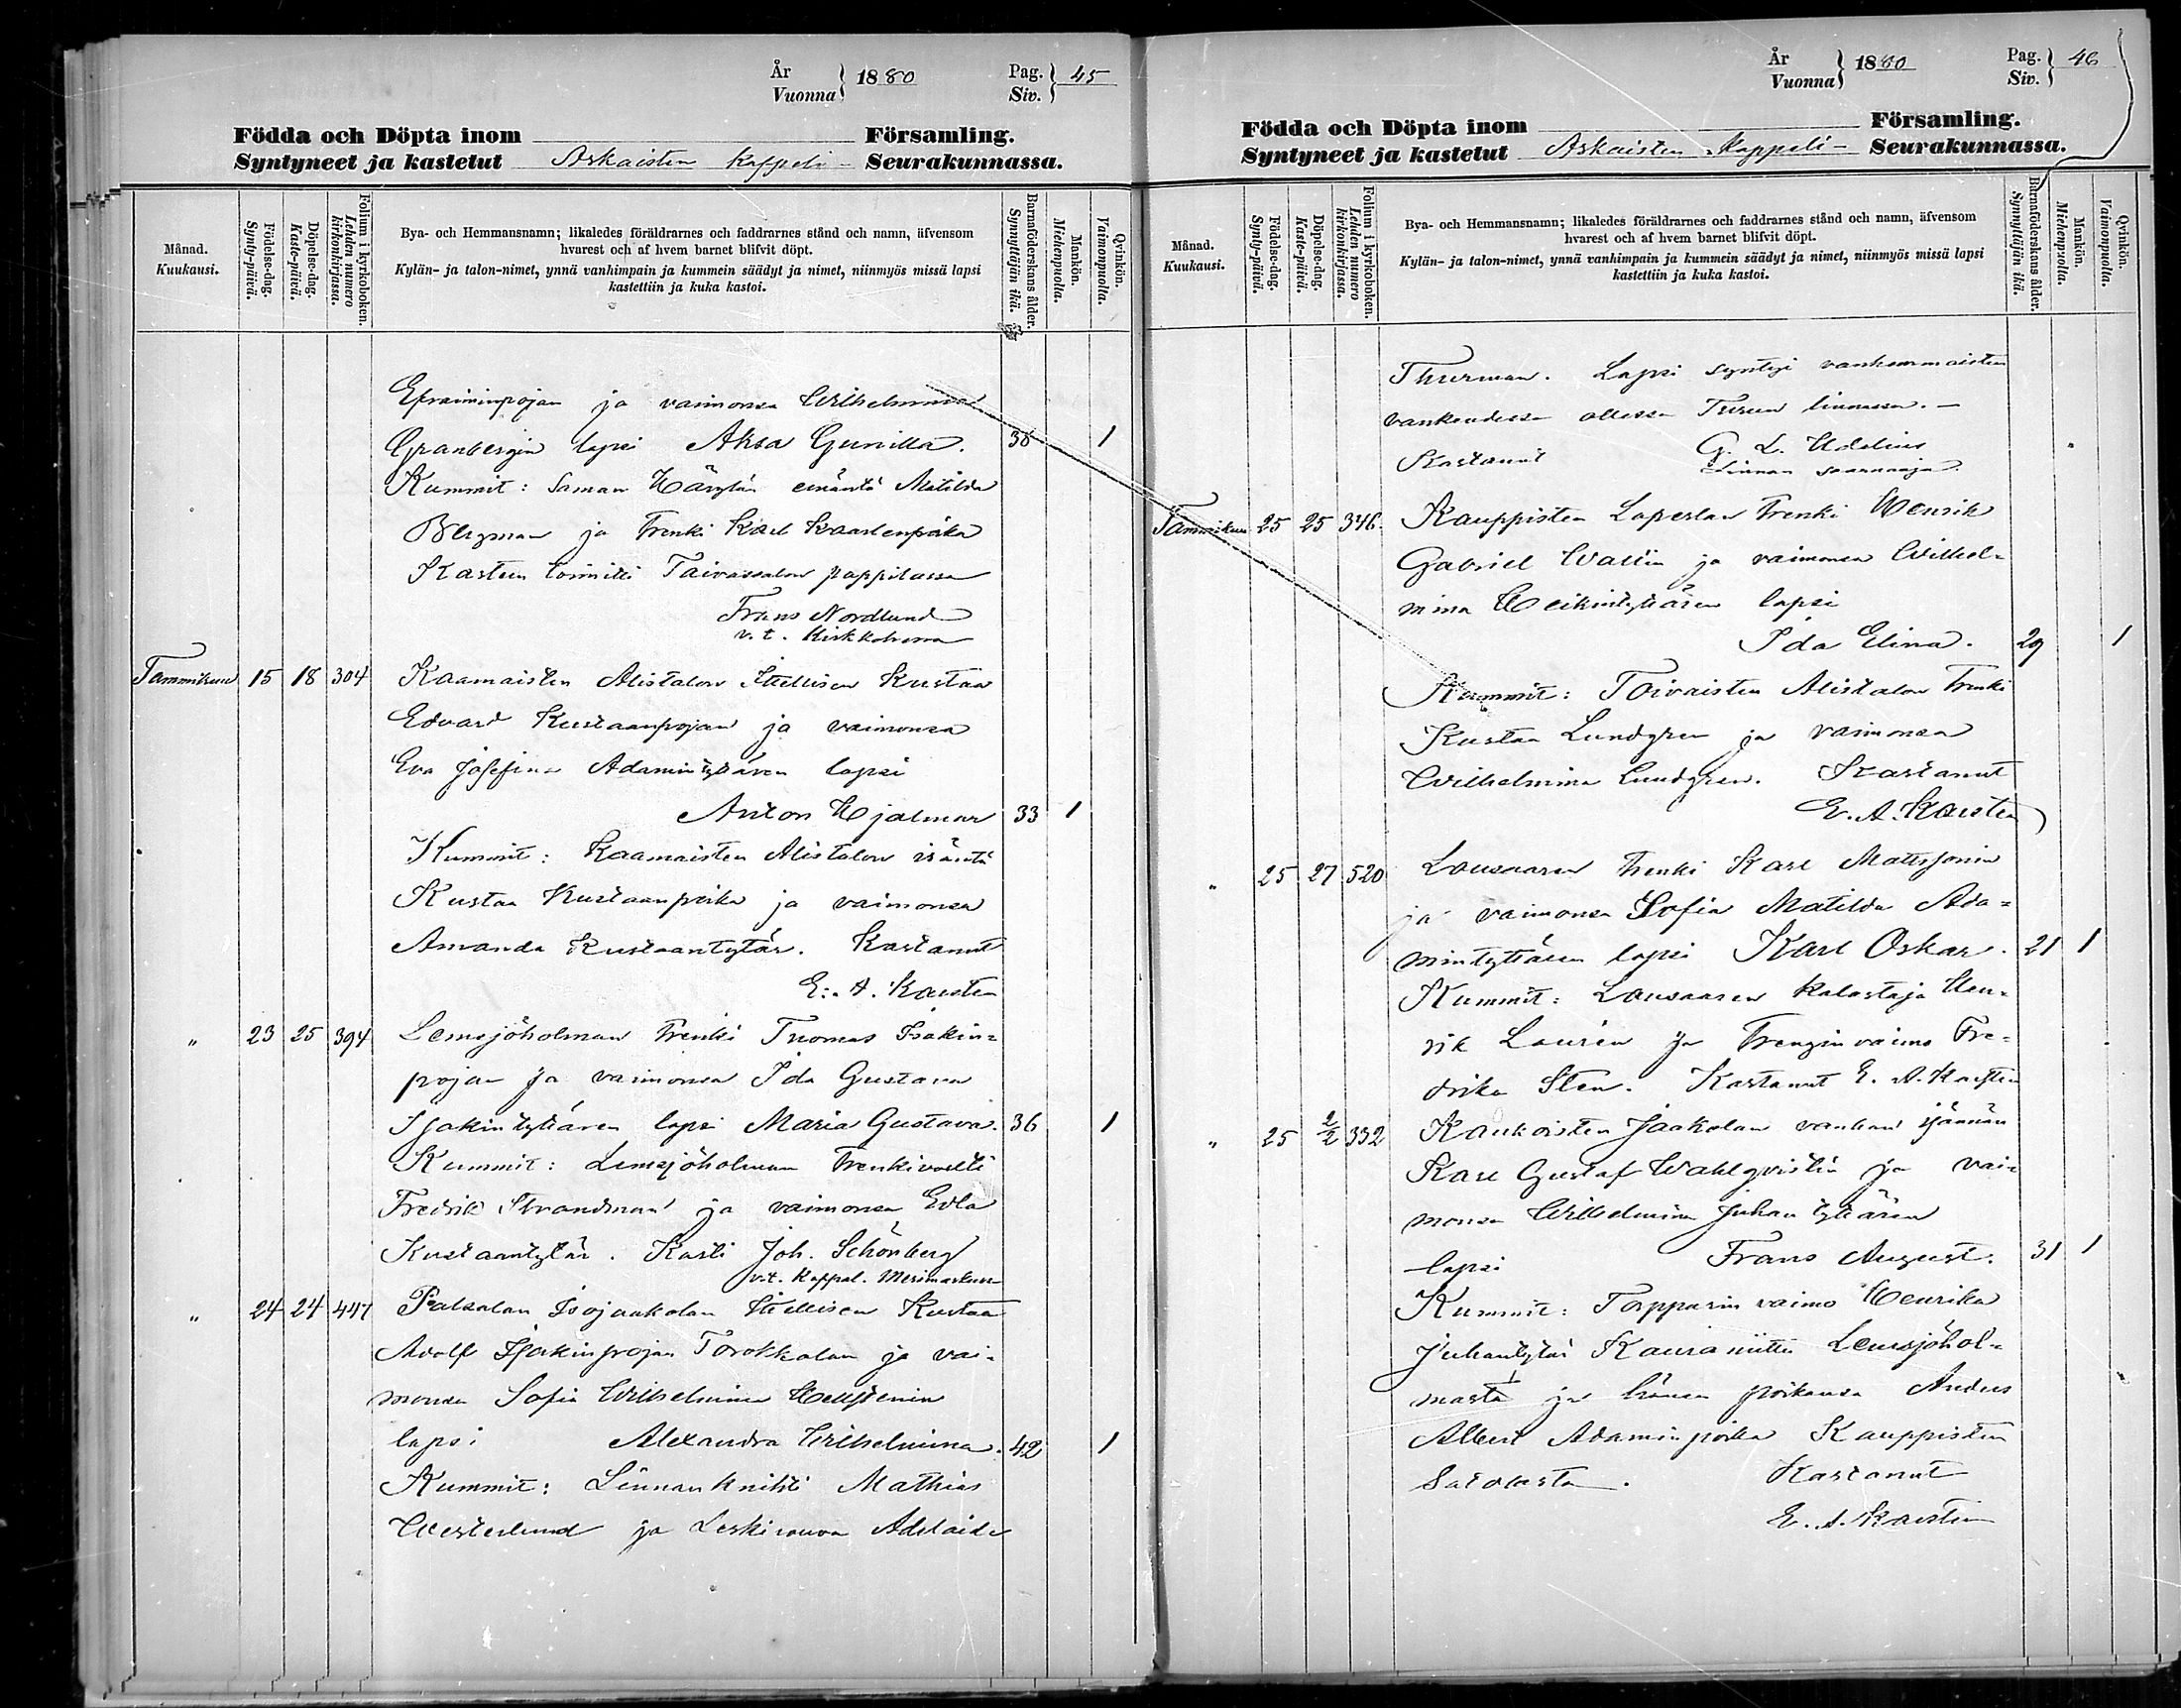 År
Vuonna } 1880
Pag.
Siv. } 45
Födda och Döpta inom Församling.
Syntyneet ja kastetut Askaisten Kappeli- Seurakunnassa.
Månad.
Kuukausi.
Födelse-dag.
Synty-päivä.
Döpelse-dag.
Kaste-päivä.
Folium i kyrkoboken.
Lehden numero
kirkonkirjassa.
Bya- och Hemmansnamn; likaledes föräldrarnes och faddrarnes stånd och namn, äfvensom
hvarest och af hvem barnet blifvit döpt.
Kylän- ja talon-nimet, ynnä vanhimpain ja kummein säädyt ja nimet, niinmyös missä lapsi
kastettiin ja kuka kastoi.
Barnaföderskans ålder.
Synnyttäjän ikä.
Mankön.
Miehenpuolta.
Qvinkön.
Vaimonpuolta.
Efraiminpojan ja vaimonsa Wilhelmina
Granbergin lapsi Aksa Gunilla. 1
Kummit: Saman emäntä Matilda
Bergman ja Trenki Karl Kaarlenpoika
Kasteen toimitti Taivassalon pappilassa
Frans Nordlund
v. t. Kirkkoherra
Tammikuu 15 18 304 Kaamaisten Alistalon Itellisen Kustaa
Edvard Kustaanpojan ja vaimonsa
Eva Josefina Adamintyttären lapsi
Anton Hjalmar 33 1
Kummit: Kaamaisten Alistalon isäntä
Kustaa Kustaanpoika ja vaimonsa
Amanda Kustaantytär. Kastanut
E. A. Karsten
" 23 25 394 Lemsjöholman Trenki Tuomas Isakin=
pojan ja vaimonsa Ida Gustava
Isakintyttären lapsi Maria Gustava. 36 1
Kummit: Lemsjöholman Trenkivouti
Fredrik Strandman ja vaimonsa Edla
Kustaantytär. Kasti Joh. Schönberg
v.t. Kappal. Merimaskussa
" 24 24 447 Isojaakolan Itellisen Kustaa
Adolf Isakinpojan Torokkalan ja vai-
monsa Sofia Wilhelmina
lapsi Alexandra Wilhelmina. 42 1
Kummit: Linnan knihti Mathias
Westerlund ja Leskirouva Adelaide
År
Vuonna } 1880
Pag.
Siv. } 46
Födda och Döpta inom Församling.
Syntyneet ja kastetut Askaisten Kappeli- Seurakunnassa.
Månad.
Kuukausi.
Födelse-dag.
Synty-päivä.
Döpelse-dag.
Kaste-päivä.
Folium i kyrkoboken.
Lehden numero
kirkonkirjassa.
Bya- och Hemmansnamn; likaledes föräldrarnes och faddrarnes stånd och namn, äfvensom
hvarest och af hvem barnet blifvit döpt.
Kylän- ja talon-nimet, ynnä vanhimpain ja kummein säädyt ja nimet, niinmyös missä lapsi
kastettiin ja kuka kastoi.
Barnaföderskans ålder.
Synnyttäjän ikä.
Mankön.
Miehenpuolta.
Qvinkön.
Vaimonpuolta.
Thurman. Lapsi syntyi vanhemmaisten
vankeudessa ollessa Turun linnassa.-
Kastanut G. L. Udelius
Linnan saarnaaja.
Tammikuu 25 25 346. Kauppisten Trenki Henrik
Gabriel Wallin ja vaimonsa Wilhel=
mina Heikintyttären lapsi
Ida Elina. 29 1
Kummit: Toivaisten Alistalon Trenki
Kustaa Lundgren ja vaimonsa
Wilhelmina Lundgren. Kastanut
E. A. Karsten
" 25 27 520 Lousaaren Trenki Karl Mattssonin
ja vaimonsa Sofia Matilda Ada=
mintyttären lapsi Karl Oskar. 21 1
Kummit: Lousaaren kalastaja Hen=
rik Laurén ja Trengin vaimo Fre=
drika Sten. Kastanut E. A. Karsten
" 25 2/2 332 Kaukoisten Jaakolan vanhan isännän
Karl Gustaf Wahlqvistin ja vai=
monsa Wilhelmina Juhantyttären
lapsi Frans August. 31 1
Kummit: Torpparin vaimo Henrika
Juhantytär Kauraniittu Lemsjöhol=
masta ja hänen poikansa Anders
Albert Adaminpoika Kauppisten
Kastanut
E. A. Karsten